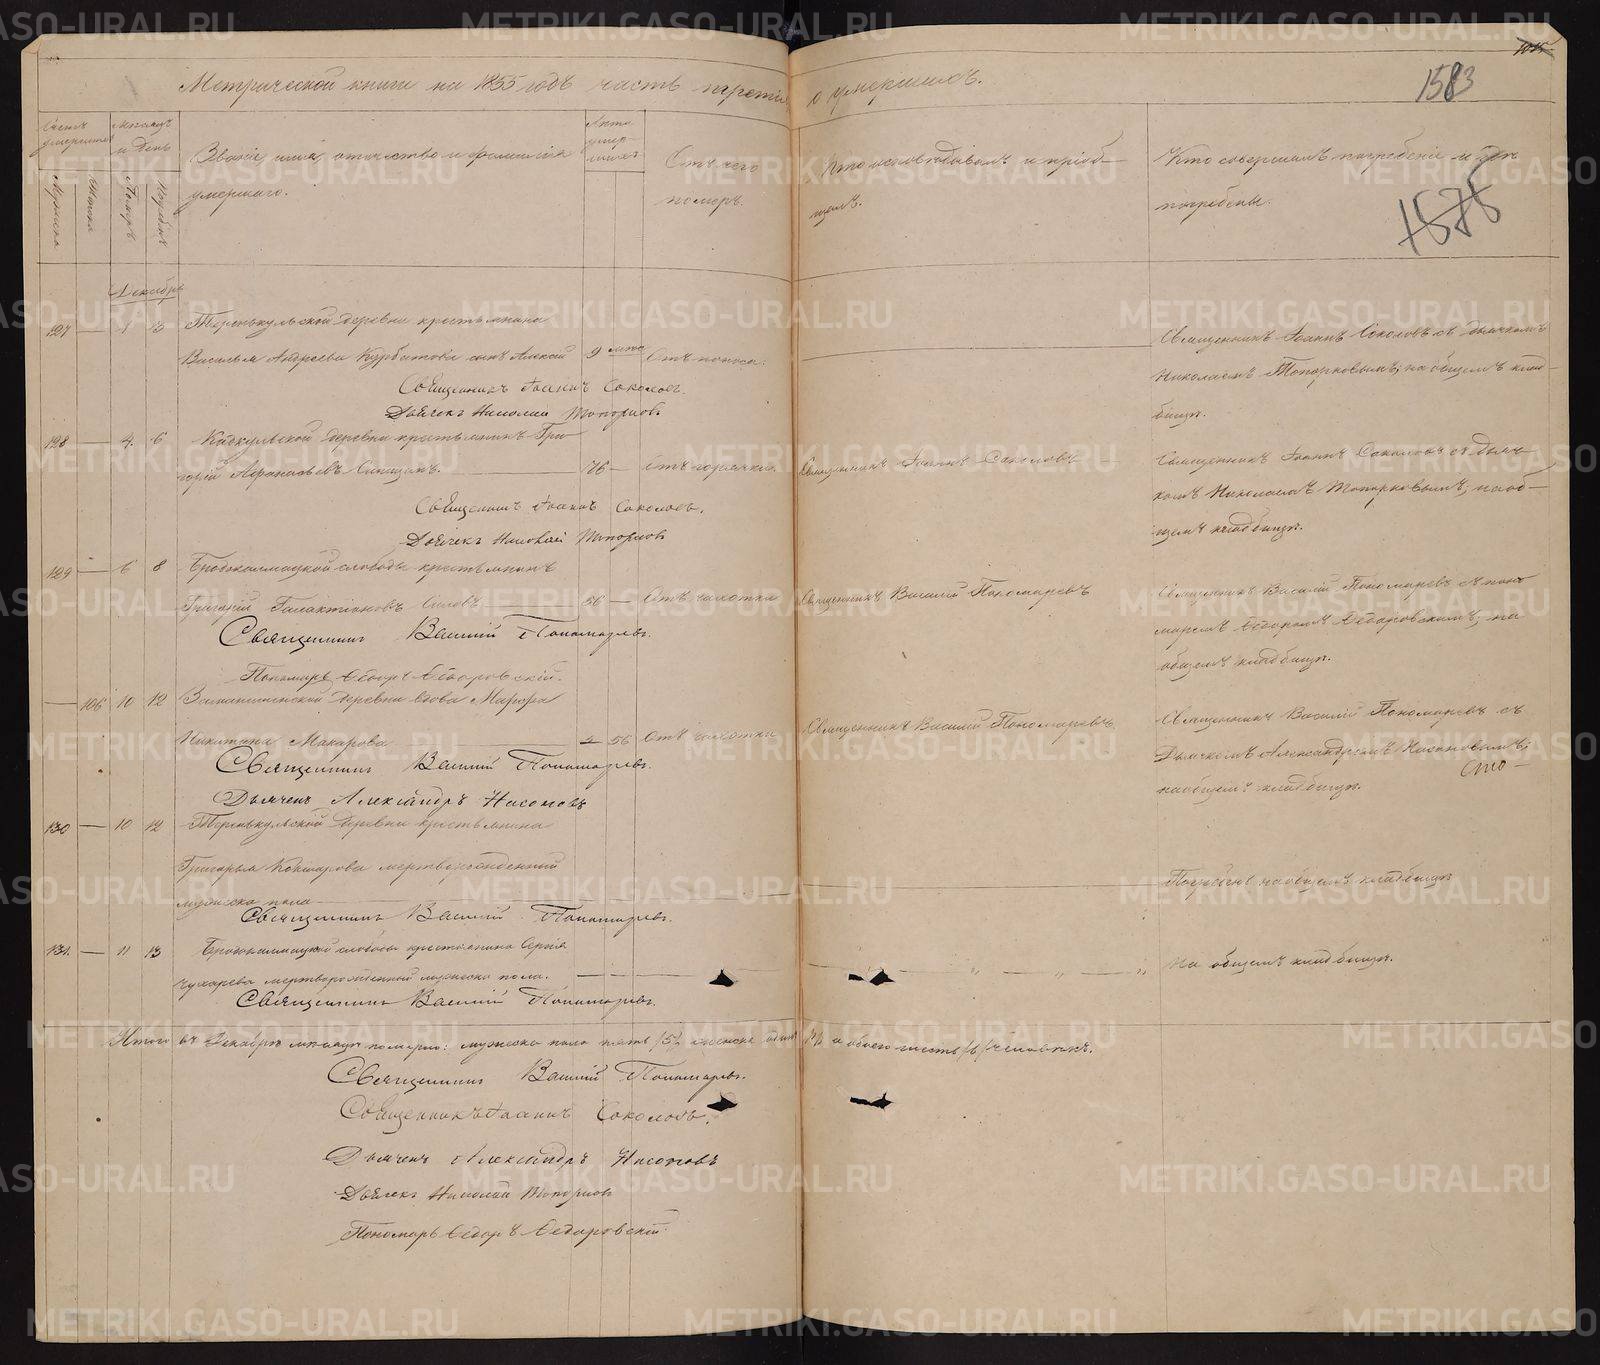 Метрической книги на 1855 годъ часть третія о умершихъ.
1583
1015
1878
Счетъ умершихъ
Мужеска
Женска
Мѣсяцъ и день
Померъ
Погребенъ
Званіе, имя, отчество и фамилія умершаго.
Лѣта умершихъ
Отъ чего померъ.
Кто исповѣдывалъ и пріобщалъ.
Кто совершалъ погребеніе и гдѣ погребены.
Декабрь
127 — 1 3 Теренкульской деревни крестьянина
Василья Андреева Курбатова сынъ Алексѣй 9 мѣс. Отъ поноса.
Священникъ Іоаннъ Соколовъ съ дьячкомъ
Николаемъ Топорковымъ; на общемъ клад-
бищѣ.
Священникъ Іоаннъ Соколовъ.
Дьячекъ Николай Топорковъ
128 — 4. 6 деревни крестьянинъ Гри-
горій Афанасьевъ 76 — Отъ горячки. Священникъ Іоаннъ Соколовъ
Священникъ Іоаннъ Соколовъ съ дьяч-
комъ Николаемъ Топорковымъ; на об-
щемъ кладбищѣ.
Священникъ Іоаннъ Соколовъ.
Дьячекъ Николай Топорковъ
129 — 6 8 Бродокалмацкой слободы крестьянинъ
Григорій Галактіоновъ 56 — Отъ чахотки Священникъ Василій Пономаревъ
Священникъ Василій Пономаревъ съ поно-
маремъ Ѳедоромъ Ѳедоровскимъ; на
общемъ кладбищѣ.
Священникъ Василій Пономаревъ.
Пономарь Ѳедоръ Ѳедоровскій.
— 106 10 12 деревни вдова Марѳа
Никитина Макарова — 56 Отъ чахотки Священникъ Василій Пономаревъ.
Священникъ Василій Пономаревъ съ
Дьячкомъ Александромъ Насоновымъ;
на общемъ кладбищѣ.
Священникъ Василій Пономаревъ.
Дьячекъ Александръ Насоновъ
130 — 10 12 Теренкульской деревни крестьянина
Григорья мертворожденный
мужеска пола
Погребенъ на общемъ кладбищѣ
Священникъ Василій Пономаревъ.
131. — 11 13 Бродокалмацкой слободы крестьянина Сергія
Чухарева мертворожденный мужеска пола. — — — — „ — „ — „ На общемъ кладбищѣ.
Священникъ Василій Пономаревъ.
Итого въ Декабрѣ мѣсяцѣ померло: мужеска пола пять /5/, женска одинъ /1/, а обоего шесть /6/ человѣкъ.
Священникъ Василій Пономаревъ.
Священникъ Іоаннъ Соколовъ.
Дьячекъ Александръ Насоновъ
Дьячекъ Николай Топорковъ
Пономарь Ѳедоръ Ѳедоровскій.
METRIKI.GASO-URAL.RU